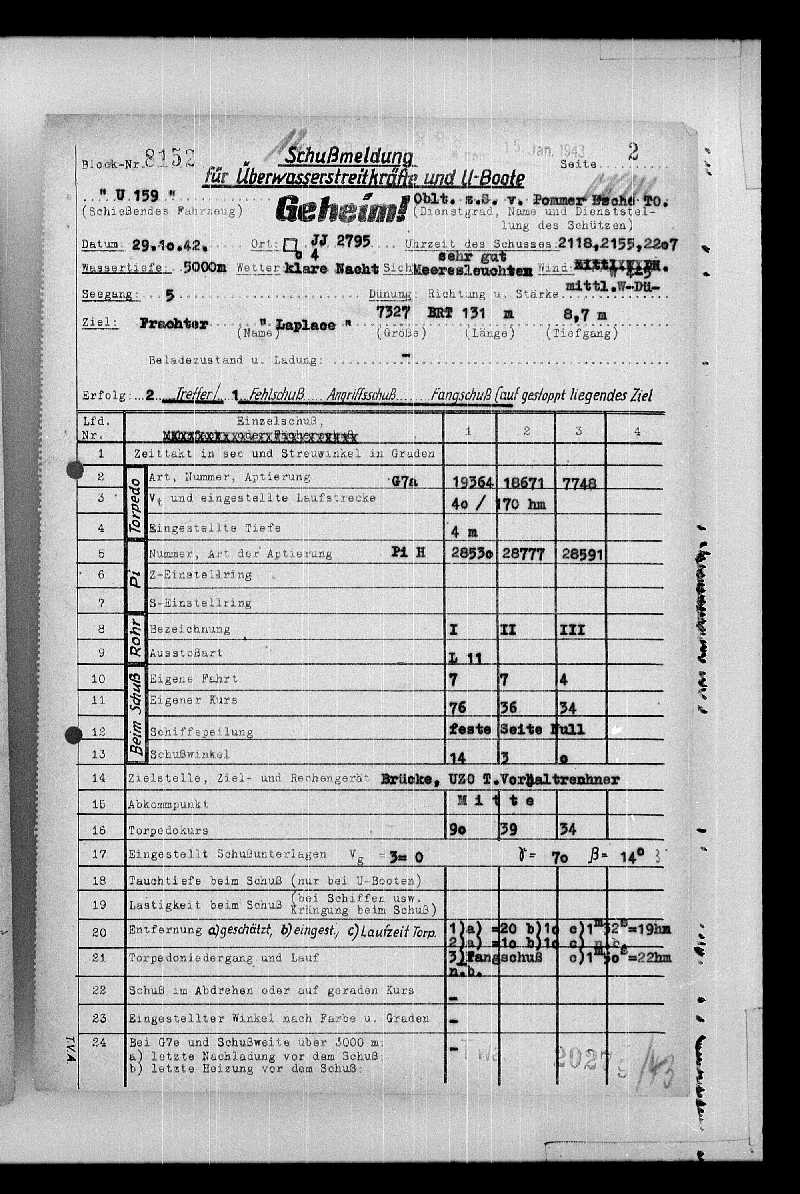 15. Jan. 1943
Block-Nr. 8152 Schußmeldung Seite 2
für Überwasserstreitkräfte und U-Boote
" U 159 " Geheim! Oblt. z.S. v. Pommer Esche TO.
(Schießendes Fahrzeug) (Dienstgrad, Name und Dienststel-
lung des Schützen)
Datum: 29.10.42. Ort: JJ 2795 Uhrzeit des Schusses: 2118,2155,2207
o 4 sehr gut
Wassertiefe: 5000m Wetter klare Nacht Sich Meeresleuchten Wind: W 4-5
Seegang: 5 Dünung: Richtung u. Stärke mittl.W-Dü-
Ziel: Frachter " Laplace " 7327 BRT 131 m 8,7 m
(Name) (Größe) (Länge) (Tiefgang)
Beladezustand u. Ladung: -
Erfolg: 2 Treffer/ 1 Fehlschuß Angriffsschuß Fangschuß (auf gestoppt liegendes Ziel
Lfd. Nr. Einzelschuß, 1 2 3 4
1 Zeittakt in sec und Streuwinkel in Graden
Torpedo
2 Art, Nummer, Aptierung G7a 19364 18671 7748
3 Vt und eingestellte Laufstrecke 40 / 170 hm
4 Eingestellte Tiefe 4 m
Pi
5 Nummer, Art der Aptierung Pi H 28530 28777 28591
6 Z-Einstellring
7 S-Einstellring
Rohr
8 Bezeichnung I II III
9 Ausstoßart L 11
Beim Schuß
10 Eigene Fahrt 7 7 4
11 Eigener Kurs 76 36 34
12 Schiffspeilung feste Seite Null
13 Schußwinkel 14 3 0
14 Zielstelle, Ziel- und Rechengerät Brücke, UZO T.Vorhaltrechner
15 Abkommpunkt M i t t e
16 Torpedokurs 90 39 34
17 Eingestellt Schußunterlagen Vg = 3= 0 γ= 70 β= 14°
18 Tauchtiefe beim Schuß (nur bei U-Booten)
19 Lastigkeit beim Schuß (bei Schiffen usw. Krängung beim Schuß)
20 Entfernung a) geschätzt, b) eingest., c) Laufzeit Torp. 1)a) =20 b)10 c)1m32s=19hm
2)a) =10 b)10 c) n.b.
21 Torpedoniedergang und Lauf 3)Fangschuß c)1m50s=22hm
n.b.
22 Schuß im Abdrehen oder auf geraden Kurs -
23 Eingestellter Winkel nach Farbe u. Graden -
24 Bei G7e und Schußweite über 3000 m: -
a) letzte Nachladung vor dem Schuß:
b) letzte Heizung vor dem Schuß:
TVA
/43